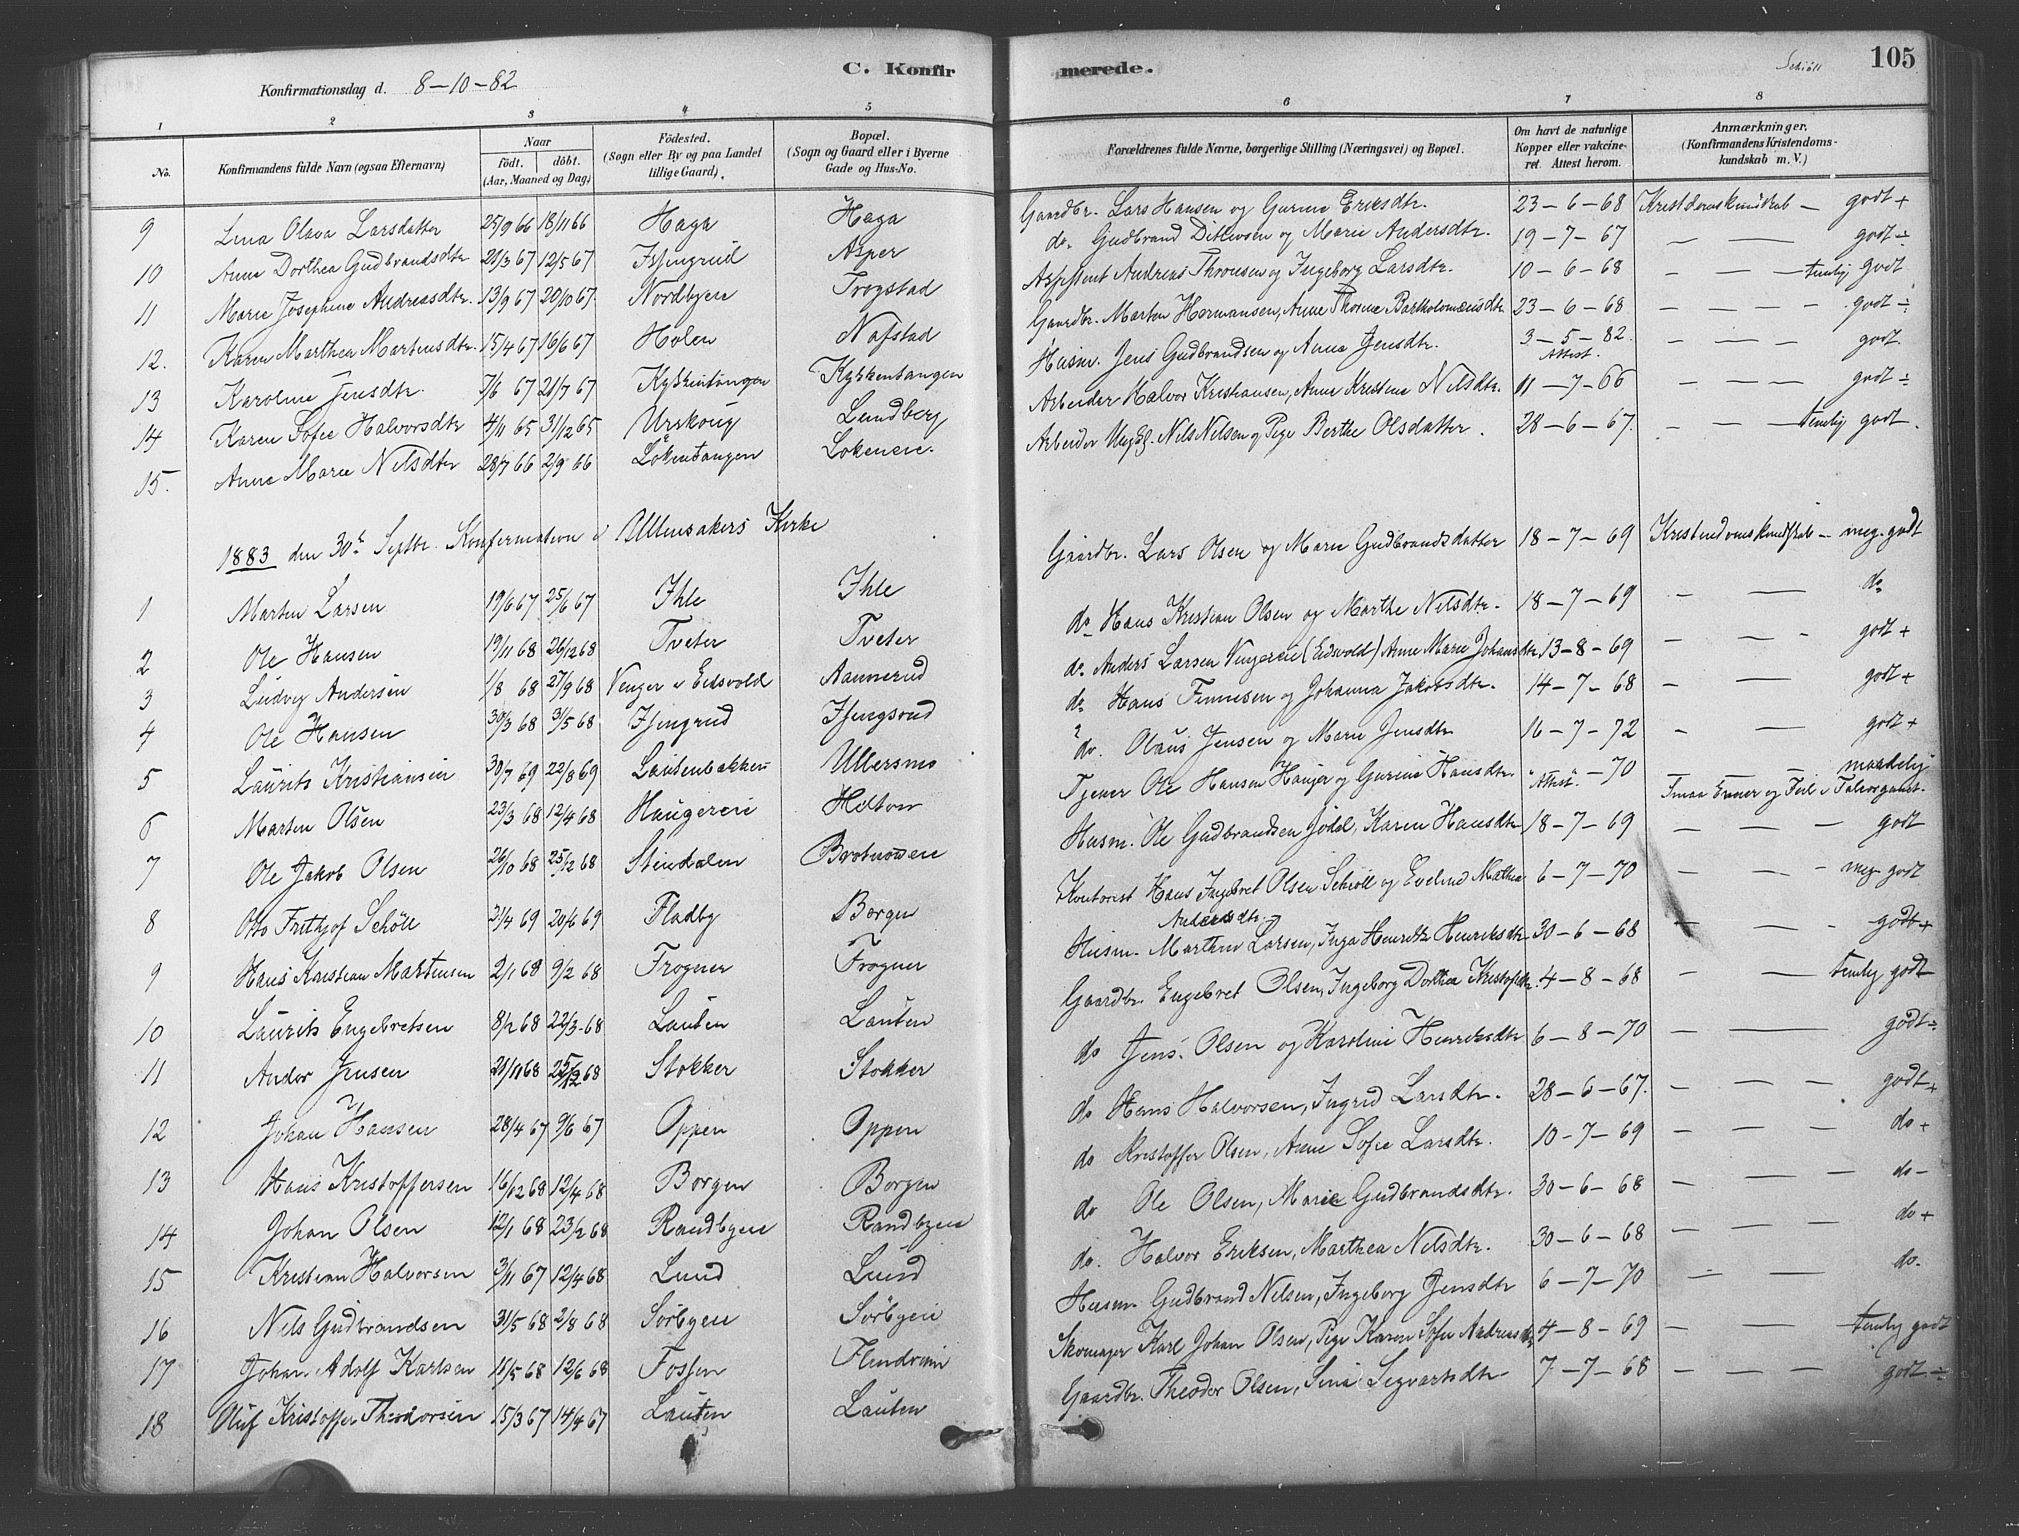 Schiöll 105
C. Konfirmerede.
Konfirmationsdag d. 8-10-82
1 2 3 4 5 6 7 8
No. Konfirmandens fulde Navn (ogsaa Efternavn) Naar födt. döbt. (Aar, Maaned og Dag) Födested. (Sogn eller By og paa Landet tillige Gaard). Bopæl. (Sogn og Gaard eller i Byerne Gade og Hus-No. Forældrenes fulde Navne, borgerlige Stilling (Næringsvei) og Bopæl. Om havt de naturlige Kopper eller vakcineret. Attest herom. Anmærkninger. (Konfirmandens Kristendomskundskab m. V.)
9 Lina Olava Larsdatter 25/9 66 18/11 66 Haga Haga Gaardbr. Lars Hansen og Gurine Eriksdtr. 23-6-68 Kristdomskundskab - godt +
10 Anne Dorthea Gudbrandsdtr 21/3 67 12/5 67 Asper do. Gudbrand Ditlevsen og Marie Andersdtr. 19-7-67 — — godt ÷
11 Marie Josephine Andreasdtr. 13/9 67 20/10 67. Nordbyeie Trogstad Assistent Andreas Thronsen og Ingeborg Larsdtr. 10-6-68 — — — temlig godt
12. Karen Marthea Martinsdtr. 15/4 67 16/6 67 Holen Nafstad Gaardbr. Marten Hermansen, Anne Thorine Bartholomæusdtr 23-6-68 — — — godt ÷
13 Karoline Jensdtr. 7/6 67 21/7 67 Kykkentangen Kykkentangen Husm. Jens Gudbrandsen og Anna Jensdtr. 3-5-82. Attest. — — — godt.
14 Karen Sofie Halvorsdtr 4/11 65 31/12 65 Urskoug Lundberg Arbeider Halvor Kristiansen, Anne Kristine Nilsdtr. 11-7-66 — — — godt ÷
15. Anne Marie Nilsdtr 28/7 66 2/9 66 Lökentangen Lökeneie. Arbeider Ungk. Nils Nilsen og Pige Berthe Olsdatter. 28-6-67. — — — temlig godt.
1883 den 30te Septbr. Konfirmation i Ullensakers Kirke
1 Marten Larsen 19/6 67 25/6 67 Ihle Ihle Gaardbr. Lars Olsen og Marie Gudbrandsdatter 18-7-69 Kristendomskundskab - meg. godt
2 Ole Hansen 19/11 68 26/12 68 Tveter Tveter do Hans Kristian Olsen og Marthe Nilsdtr. 18-7-69 — — do
3 Ludvig Andersen 1/8 68 27/9 68 Venger i Eidsvold Aannerud do. Anders Larsen Vengereie (Eidsvold) Anne Marie Johansdtr. 13-8-69 — — - godt +
4 Ole Hansen 30/3 68 31/5 68 do Hans Finnesen og Johanna Jakobsdtr. 14-7-68 — — godt +
5 Laurits Kristiansen 30/7 69 22/8 69 Lautenbakken Ullersmo ? do. Olaus Jensen og Marie Jensdtr 16-7-72 — — godt +
6 Marten Olsen 23/3 68 12/4 68 Haugereie Hilton Tjener Ole Hansen Hauger og Gurine Hansdtr. "Attest". - 70 — — — maadelig Smaa Evner og Feil i Taleorganet.
7 Ole Jakob Olsen 26/10 68 25/12 68 Stendalen Husm. Ole Gudbrandsen Jödal, Karen Hansdtr 18-7-69 — — — godt
8 Otto Frithjof Schöll 21/4 69 20/6 69 Fladby Borgen Kontorist Hans Ingebret Olsen Schiöll og Evelind Mathea Andersdtr. 6-7-70 — — - meg godt
9 Hans Kristian Martinsen 2/1 68 9/2 68 Frogner Frogner Husm. Marthin Larsen, Inga Henritte Henriksdtr 30-6-68 — — - godt +
10 Laurits Engebretsen 8/2 68 22/3-68 Lauten Lauten Gaardbr. Engebret Olsen, Ingeborg Dorthea Kristofdtr. 4-8-68 — — temlig godt
11 Andor Jensen 21/11 68 25/12 68 Stokker Stokker do Jens Olsen og Karoline Henriksdtr 6-8-70 — — godt ÷
12 Johan Hansen 28/4 67 9/6 67 Oppen Oppen do Hans Halvorsen, Ingrid Larsdtr. 28-6-67. — — — godt +
13 Hans Kristoffersen 16/02 68 12/4 68 Borgen Borgen do Kristoffer Olsen, Anne Sofie Larsdtr. 10-7-69 — — — do +
14 Johan Olsen 12/1 68 23/2 68 Randbyeie Randbyeie do Ole Olsen, Marie Gudbrandsdtr. 30-6-68 — — — do -
15 Kristian Halvorsen 3/11 67 12/4 68 Lund Lund do. Halvor Eriksen, Marthea Nilsdtr. 30-6-68 — — — do +
16 Nils Gudbrandsen 31/5 68 2/8 68 Sörbyeie Sörbyeie Husm. Gudbrand Nilsen, Ingeborg Jensdtr 6-7-70 — — — do.
17 Johan Adolf Karlsen 11/5 68 12/6 68 Fossen Skomager Karl Johan Olsen, Pige Karen Sofie Andreasdtr 4-8-69 — — — temlig godt
18 Oluf Kristoffer Theodorsen 15/3 67 14/4 67 Lauten Lauten Gaardbr. Theodor Olsen, Sina Sigvartsdtr 7-7-68 — — — godt ÷